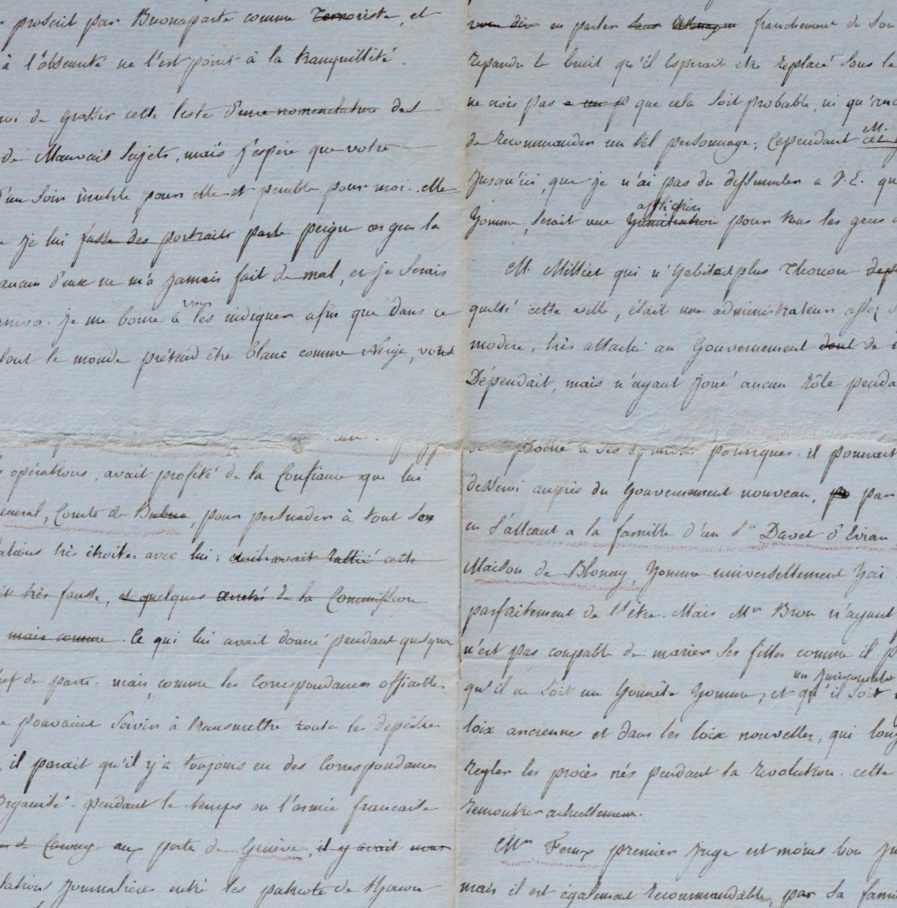 proscrit par Buonaparte comme Terroriste, et
à l'obscurité ne l'est point à la tranquillité.
moi de grossir cette liste d'une nomenclature des
de Mauvais Sujets, mais j'espère que votre
d'un soin inutile pour elle et penible pour moi. elle
je lui fasse des portraits parte peigne
aucun d'eux ne m'a jamais fait de mal, et je serais
je me borne à vous les indiquer afin que dans ce
tout le monde prétend être blanc comme Neige, vous
opérations, avait profité de la Confiance que lui
General, Comte de Bubna, pour persuader à tout son
relations très étroites avec lui;
très fausse, et quelques de la Commission
mais comme Ce qui lui avait donné pendant quelque
de parti. mais, comme les Correspondances officielles
pouvaient servir à transmettre toutes les depêches
il parait qu'il y'a toujours eu des Correspondances
organisé. pendant le temps ou l'armée francaise
aux porte de Genève, il y avait
relations journalières entre les patriote de
en parler franchement de son
repandre le bruit qu'il esperait etre replacé sous la
ne crois pas que cela soit probable, ni qu'
de recommander un tel personnage; Cependant M.
jusqu'ici, que je n'ai pas du dissimuler a V.E. qu
homme, serait une affliction humiliation pour tous les gens
M. Milliet qui n'habitait plus Thonon
quitté cette ville, était un administrateur assez
modéré, très attaché au Gouvernement dont
Dépendait, mais n'ayant joué aucun rôle penda
politiques. il pourrait
auprès du Gouvernement nouveau, par
en s'alliant a la famille d'un Sr Davet d'Evian
Maison de Blonay, homme universellement haï
parfaitement de l'être. Mais Mr Bron n'ayant
n'est pas coupable de marier ses filles comme il p
qu'il ne soit un honnête homme, et qu'il soit un Jurisconsulte
loix anciennes et dans les loix nouvelles, qui
regler les procès nés pendant la revolution. cette
remontrer actuellement.
Mr premier Juge est moins bon
mais il est également recommandable, par sa fami